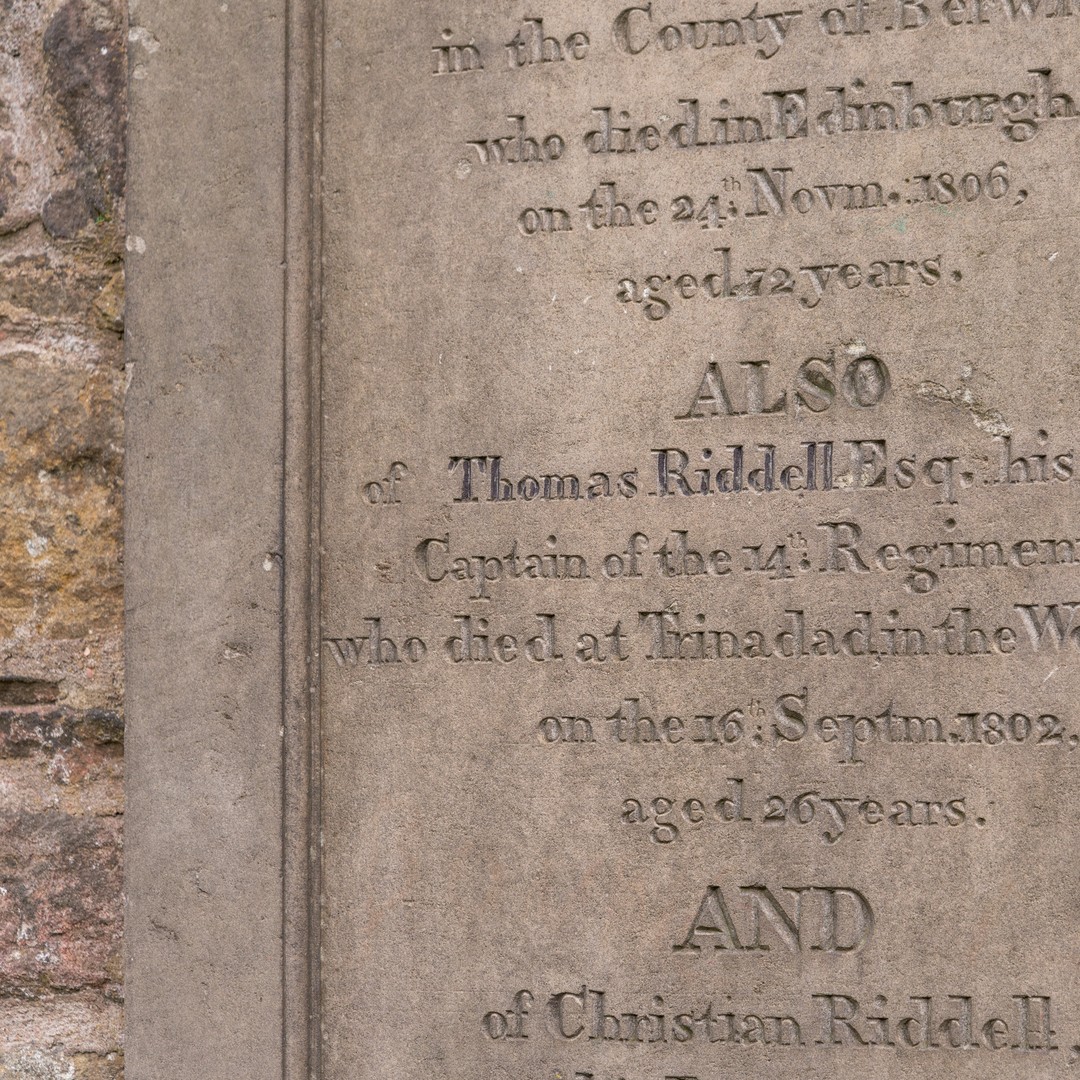 in the County of Berwi
who died in Edinburgh
on the 24th Novm. 1806,
aged 72 years.
ALSO
of Thomas Riddell Esq. his
Captain of the 14th Regimen
who died at Trinadad in the We
on the 16th Septm. 1802,
aged 26 years.
AND
of Christian Riddell,